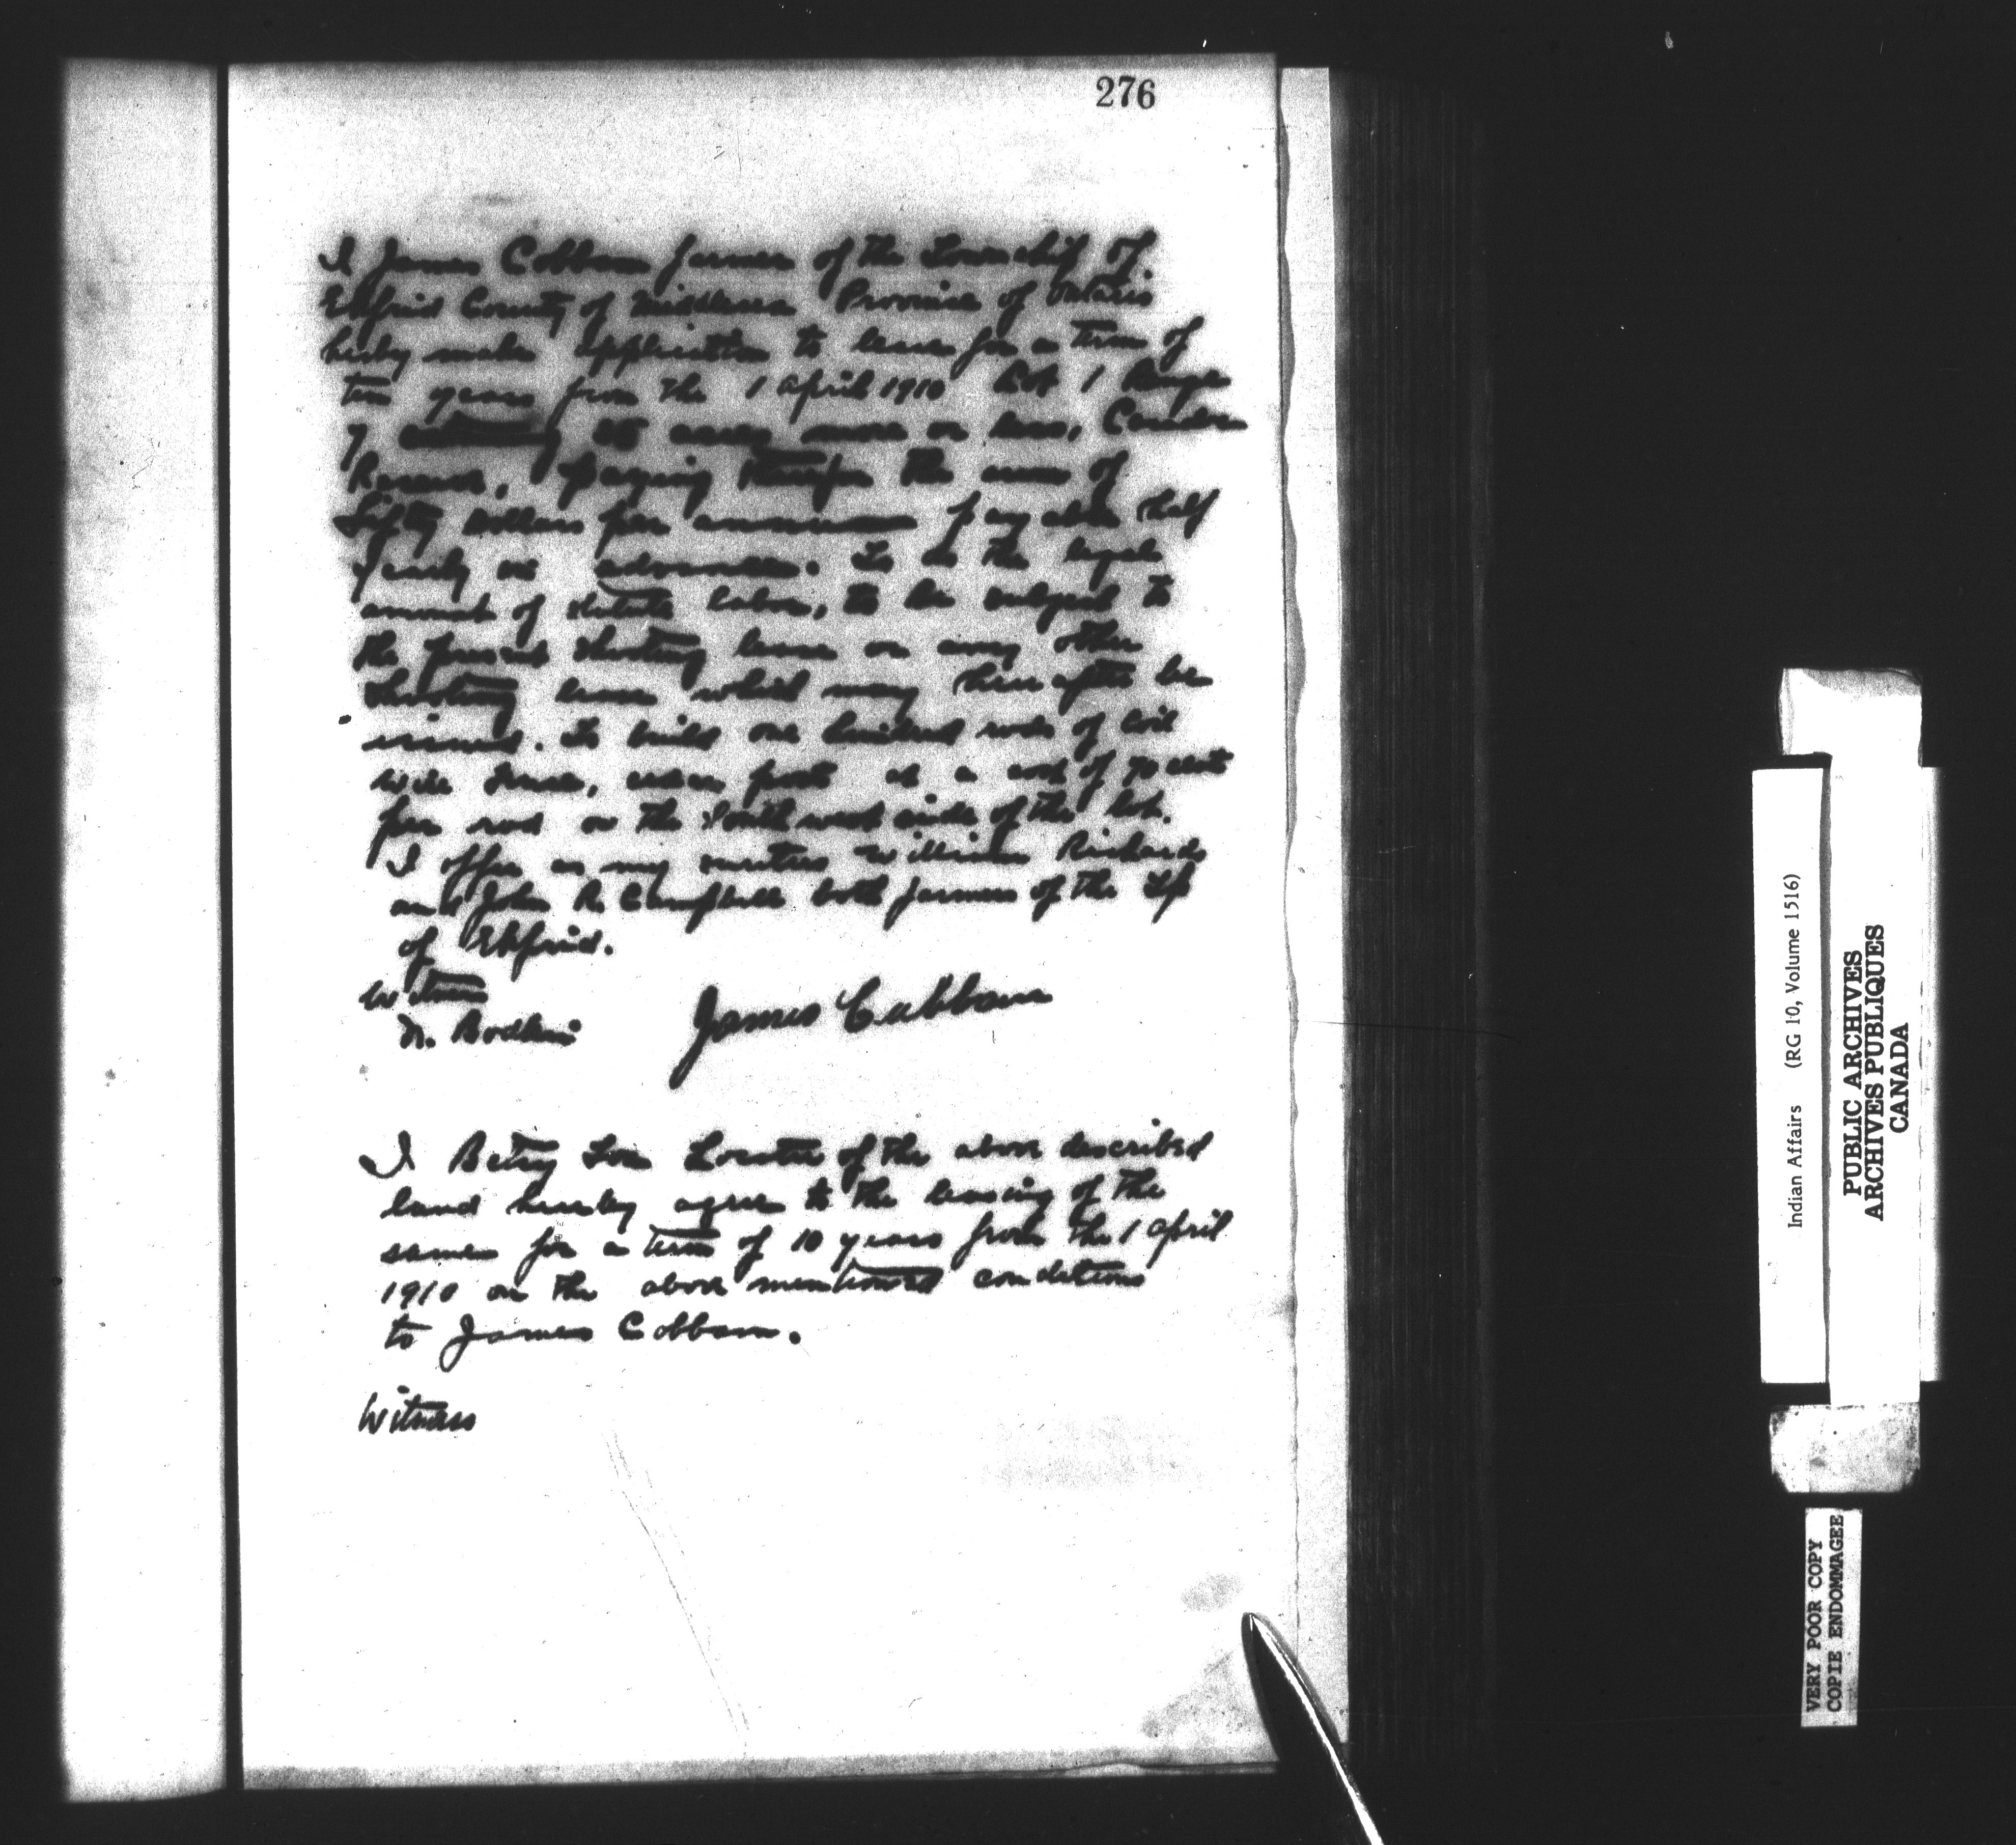 276
I James Cobban farmer of the Township of
Ekfrid County of Middlesex Province of Ontario
herby make application to lease for a term of
ten years from the 1 April 1910 Lot 1 Range
7 containing acres more or less, Caradoc
Reserve, paying therefor the sum of
Fifty Dollars per annum payable half
yearly in advance. To do the legal
amount of statute labor, to be subject to
the present shooting lease or any other
shooting lease which may hereafter be
issued. To build one hundred rods of coil
wire fence, posts at a cost of 70 cents
per rod on the South west side of the lot.
I offer as my sureties William Richards
and John R. Campbell both farmers of the Tp
of Ekfrid.
Witness
James Cubban
I Betsy Loustee of the above described
land hereby agree to the leasing of the
same for a term of 10 years from the 1 April
1910 on the above mentioned conditions
to James Cobban.
Witness
Indian Affairs (RG 10, Volume 1516)
PUBLIC ARCHIVES
ARCHIVES PUBLIQUES
CANADA
VERY POOR COPY
COPIE ENDOMMAGEE